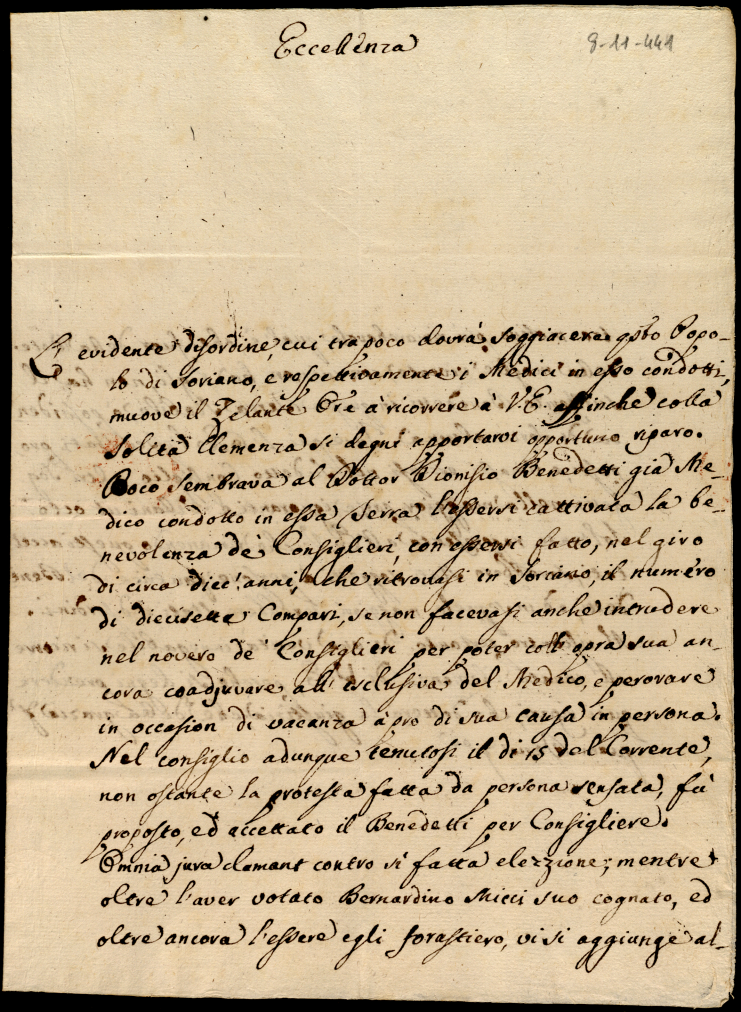 Eccellenza
8-11-441
L'evidente disordine, cui tra poco dovrà soggiacere qsto Popo-
lo di Soriano, e respettivamente i Medici in esso condotti,
muove il Zelante Ore à ricorrere à V.E. affinche colla
solita Clemenza si degni apportarvi opportuno riparo.
Poco sembrava al Dottor Dionisio Benedetti già Me-
dico condotto in essa Terra l'essersi cattivata la be-
nevolenza de' Consiglieri, con essersi fatto, nel giro
di circa dieci anni, che ritrovasi in Soriano, il numero
di diecisette Compari, se non facevasi anche intrudere
nel novero de' Consiglieri per poter coll' opra sua an-
cora coadjuvare all' esclusiva del Medico, e perorare
in occasion di vacanza à pro di sua causa in persona.
Nel consiglio adunque tenutosi il dì 15 del Corrente,
non ostante la protesta fatta da persona sensata, fù
proposto, ed accettato il Benedetti per Consigliere.
Omnia jura clamant contro sì fatta elezzione; mentre
oltre l'aver votato Bernardino Micci suo cognato, ed
oltre ancora l'essere egli forastiero, vi si aggiunge al-